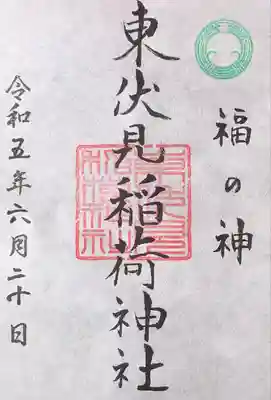 福の神
東伏見稲荷神社
令和五年六月二十日